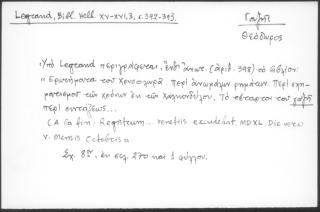 Legrand, Bibl. Hell. XV-XVI, 3, σ. 392-393.
Γαζῆς
Θεόδωρος
Ὑπὸ Legrand περιγράφεται, (ἀριθ. 398) τὸ βιβλίον:
"Ἐρωτήματα τοῦ Χρυσολωρᾶ. Περὶ ἀνωμάλων ῥημάτων. Περὶ σχη-
ματισμοῦ τῶν χρόνων ἐκ τῶν Χαλκονδύλου. Τὸ τέταρτον τοῦ Γαζῆ
περὶ συντάξεως...
(A la fin: Registrum... Venetiis excudebat MDXL. Die vero
V. Mensis Octobris»
Σχ. 8ον, ἐκ σελ. 270 καὶ 1 φύλλου.